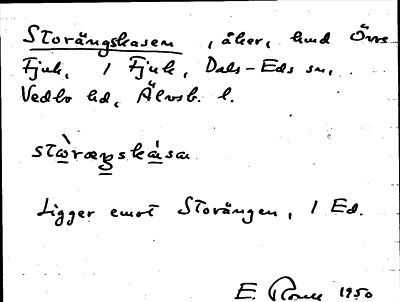 Storängskasen, åker, hmd Övre
Fjuk, 1 Fjuk, Dals-Eds sn,
Vedbo hd, Älvsb. l.
stὼræŋskɑ̀sɑ
Ligger emot Storängen, 1 Ed.
E. 1950